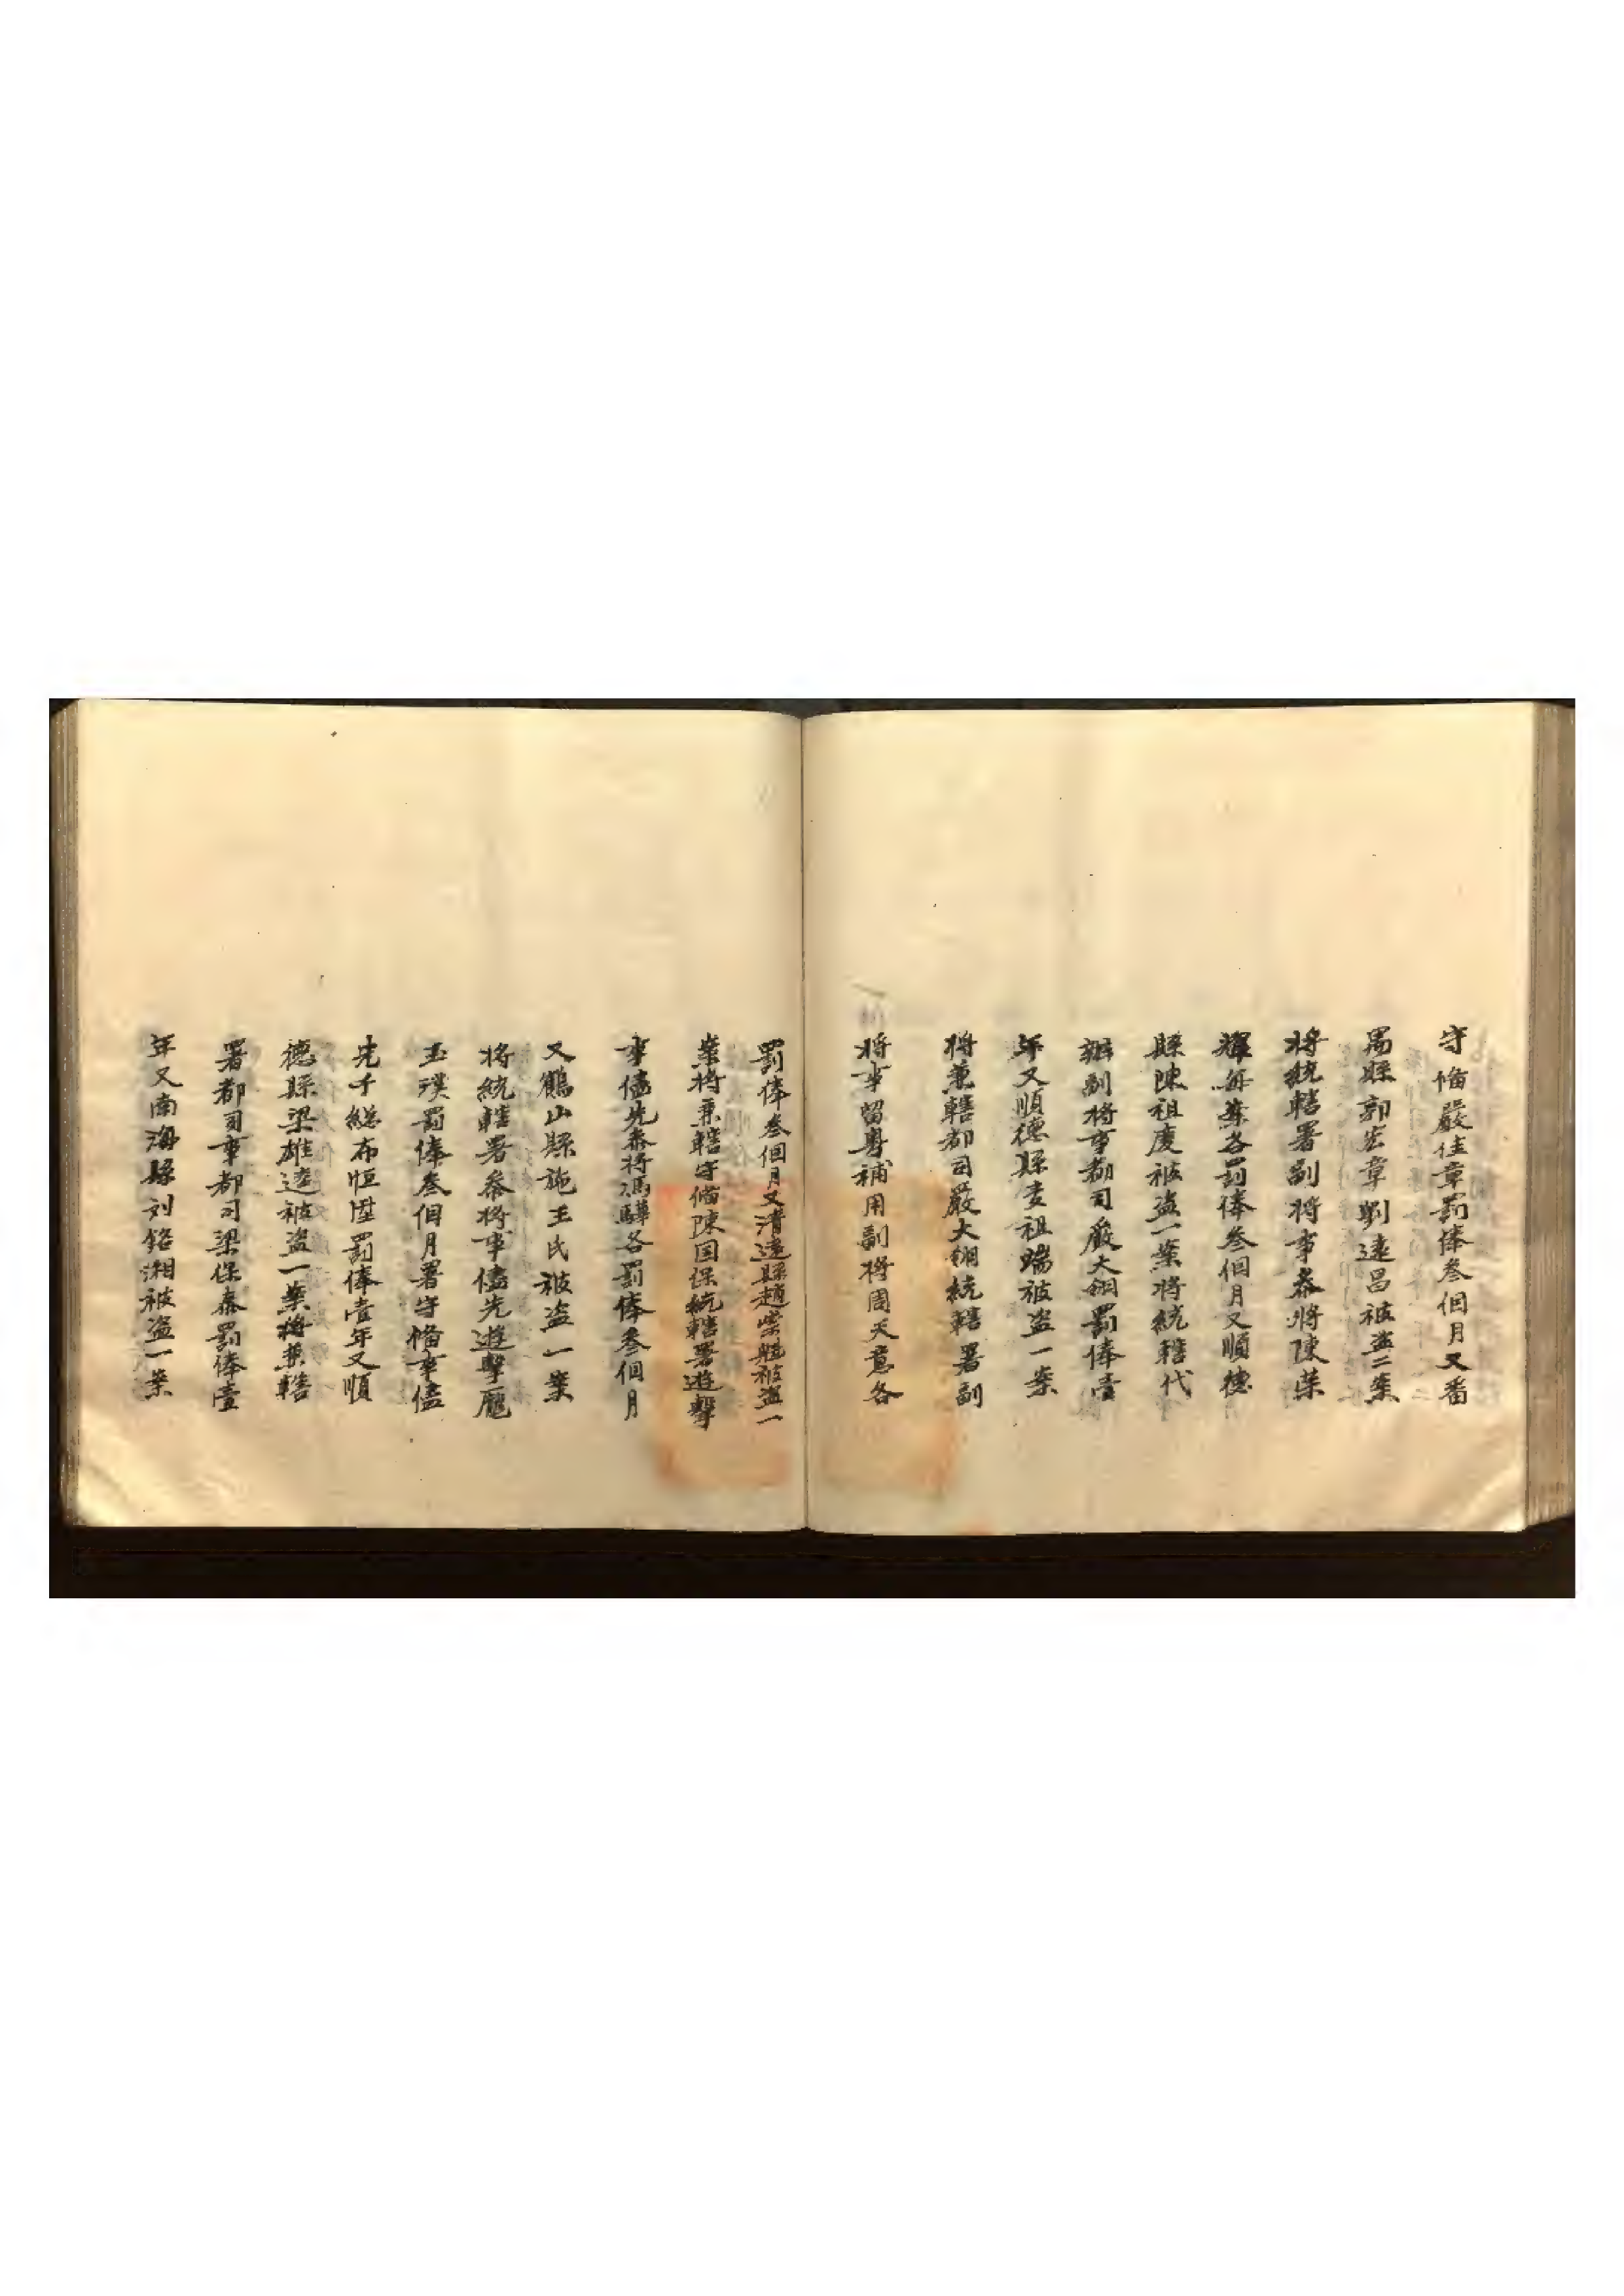 守俻嚴佳章罰俸叁個月又番
禺縣郭宏章劉遠昌被盜二案
将統轄署副将事叅將陳荣
輝每案各罰俸叁個月又順德
縣陳祖慶被盜一案将統轄代
辦副将事都司嚴大錩罰俸壹
年又順德縣麦祖瑞被盜一案
将兼轄都司嚴大錩統轄署副
将事留粤補用副將周天意各
罰俸叁個月又清遠縣趙榮魁被盜一
案将兼轄守俻陳国保統轄署遊擊
事儘先叅将馮驊各罰俸叁個月
又鶴山縣施王氏被盜一案
将統轄署叅将事儘先遊擊龐
玉璞罰俸叁個月署守俻事儘
先千総布恒陞罰俸壹年又順
德縣梁雄逵被盜一案將兼轄
署都司事都司梁保泰罰俸壹
年又南海縣刘銘湘被盜一案